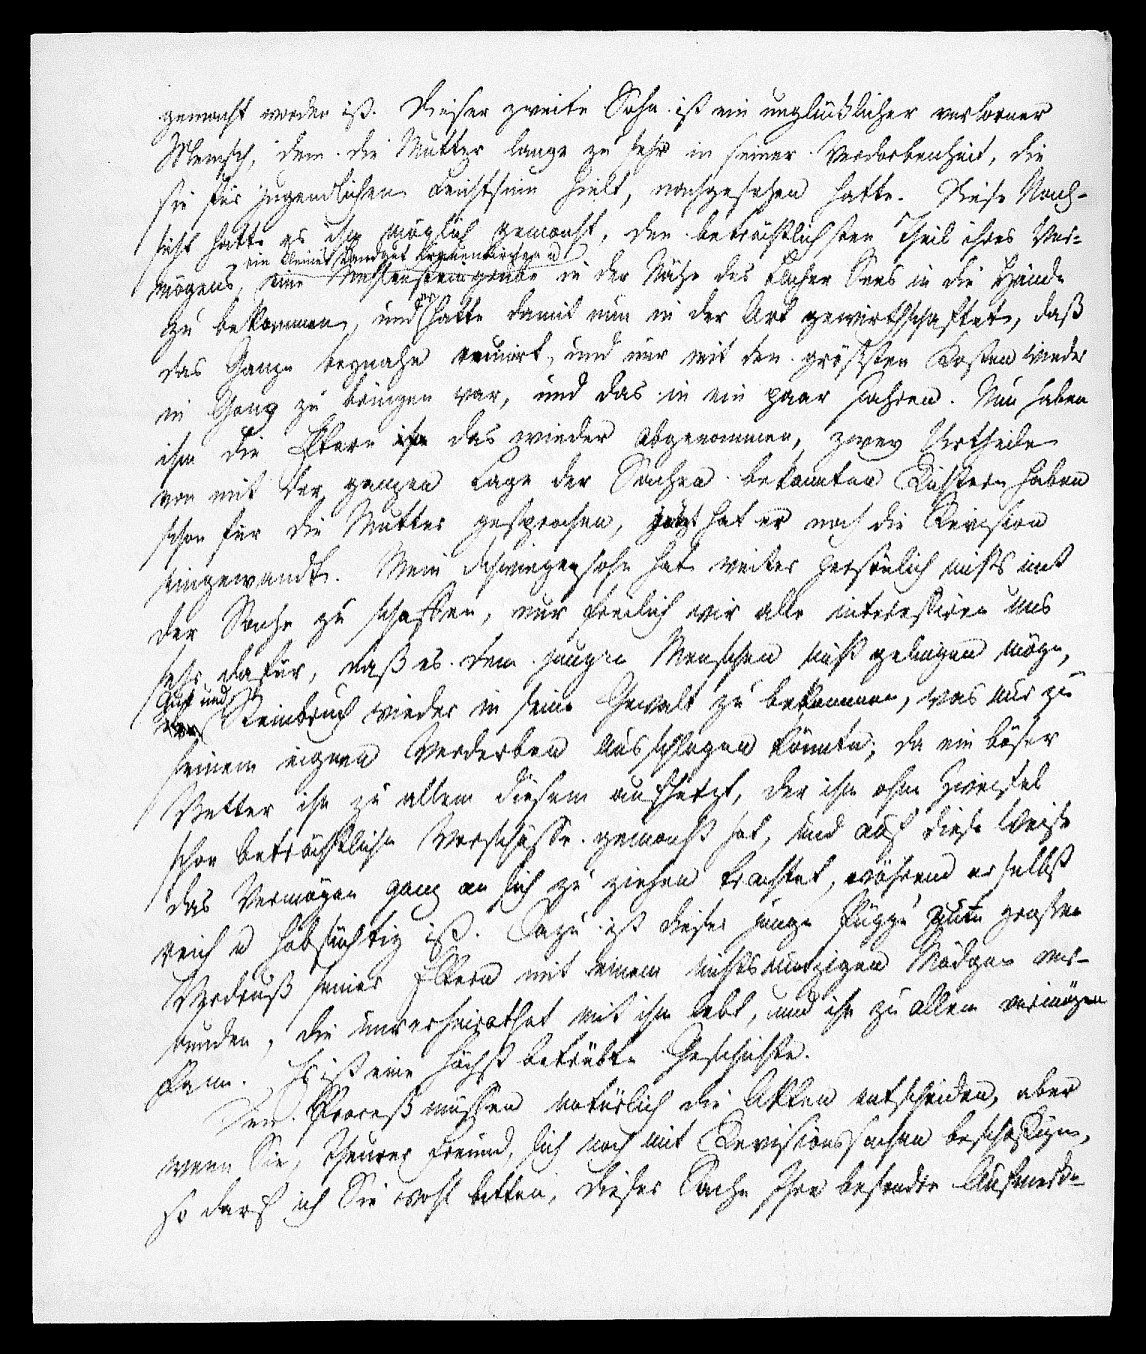 gemacht worden ist. Dieser zweite Sohn ist ein unglücklicher verlorner
Mensch, dem die Mutter lange zu sehr in seiner Verderbenheit, die
sie für jugendlichen Leichtsinn hielt, nachgesehen hatte. Diese Nach-
sicht hatte es ihm möglich gemacht, den beträchlichsten Theil ihres Ver-
ein kleines Landgut Frauenkirchen u
mögens, eine Mühlensteingrube in der Nähe des Lacher Sees in die Hände
zu bekommen, und er hatte damit nun in der Art gewirthschaftet, daß
das Ganze beynahe ruinirt, und nur mit den grössten Kosten wieder
in Gang zu bringen war, und das in ein paar Jahren. Nun haben
ihm die Eltern das wieder abgenommen, zwey Urtheile
von mit der ganzen Lage der Sachen bekannten Richtern haben
schon für die Mutter gesprochen, jetzt hat er noch die Revision
eingewandt. Mein Schwiegersohn hat weiter persönlich nichts mit
der Sache zu schaffen, nur freilich wir alle interessiren uns
sehr dafür, daß es dem jungen Menschen nicht gelingen möge,
Gut und
Steinbruch wieder in seine Gewalt zu bekommen, was nur zu
seinem eignen Verderben ausschlagen könnte, da ein böser
Vetter ihn zu allem diesem aufhetzt, der ihm ohne Zweifel
schon beträchtliche Vorschüsse gemacht hat, und auf diese Weise
das Vermögen ganz an sich zu ziehen trachtet, während er selbst
reich u habsüchtig ist. Dazu ist dieser junge zum grossen
Verdruß seiner Eltern mit einem nichtsnutzigen Mädgen ver-
bunden, die unverheirathet mit ihm lebt, und ihn zu allem vermögen
kann. Es ist eine höchst betrübte Geschichte.
Den Proceß müssen natürlich die Akten entscheiden, aber
wenn Sie, Theurer Freund, sich noch mit Revisionssachen beschäftigen,
so darf ich Sie wohl bitten, dieser Sache Ihre besondre Aufmerk-